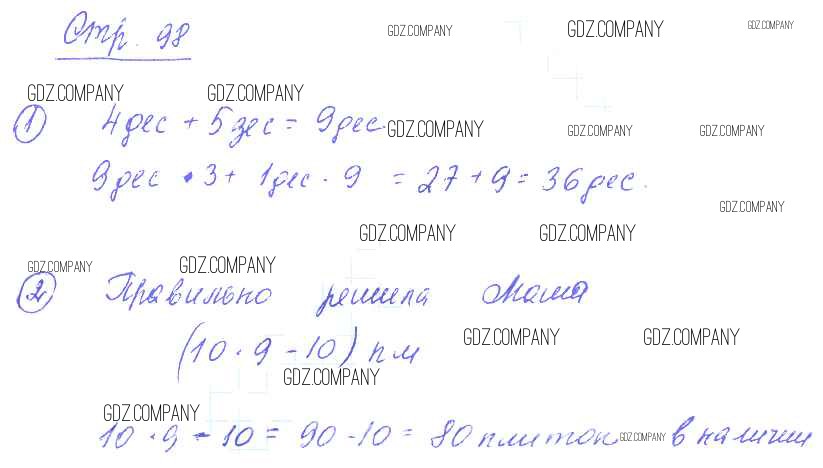 Стр. 98
GDZ.COMPANY GDZ.COMPANY GDZ.COMPANY
GDZ.COMPANY GDZ.COMPANY
1 4 дес + 5 дес = 9 дес. GDZ.COMPANY GDZ.COMPANY GDZ.COMPANY
9 дес · 3 + 1 дес · 9 = 27 + 9 = 36 дес.
GDZ.COMPANY
GDZ.COMPANY GDZ.COMPANY
GDZ.COMPANY GDZ.COMPANY
2 Правильно решила Маша
(10 · 9 - 10) пл GDZ.COMPANY GDZ.COMPANY
GDZ.COMPANY
GDZ.COMPANY
10 · 9 - 10 = 90 - 10 = 80 плиток GDZ.COMPANY в наличии